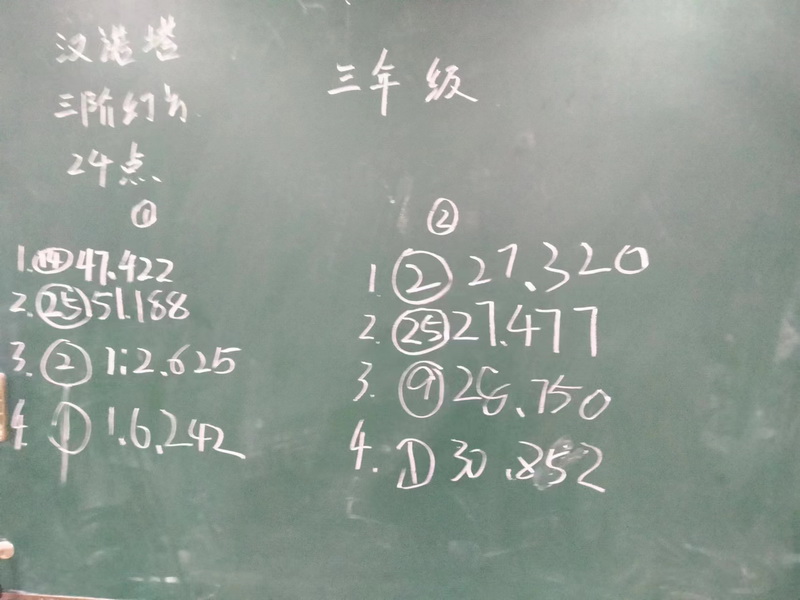 汉诺塔
三阶幻方
24点
三年级
①
1. ⑭ 47.422
2. ㉕ 51.188
3. ② 1:2.625
4. ① 1.6.242
②
1 ② 27.320
2. ㉕ 27.477
3. ⑨ 28.750
4. ① 30.852